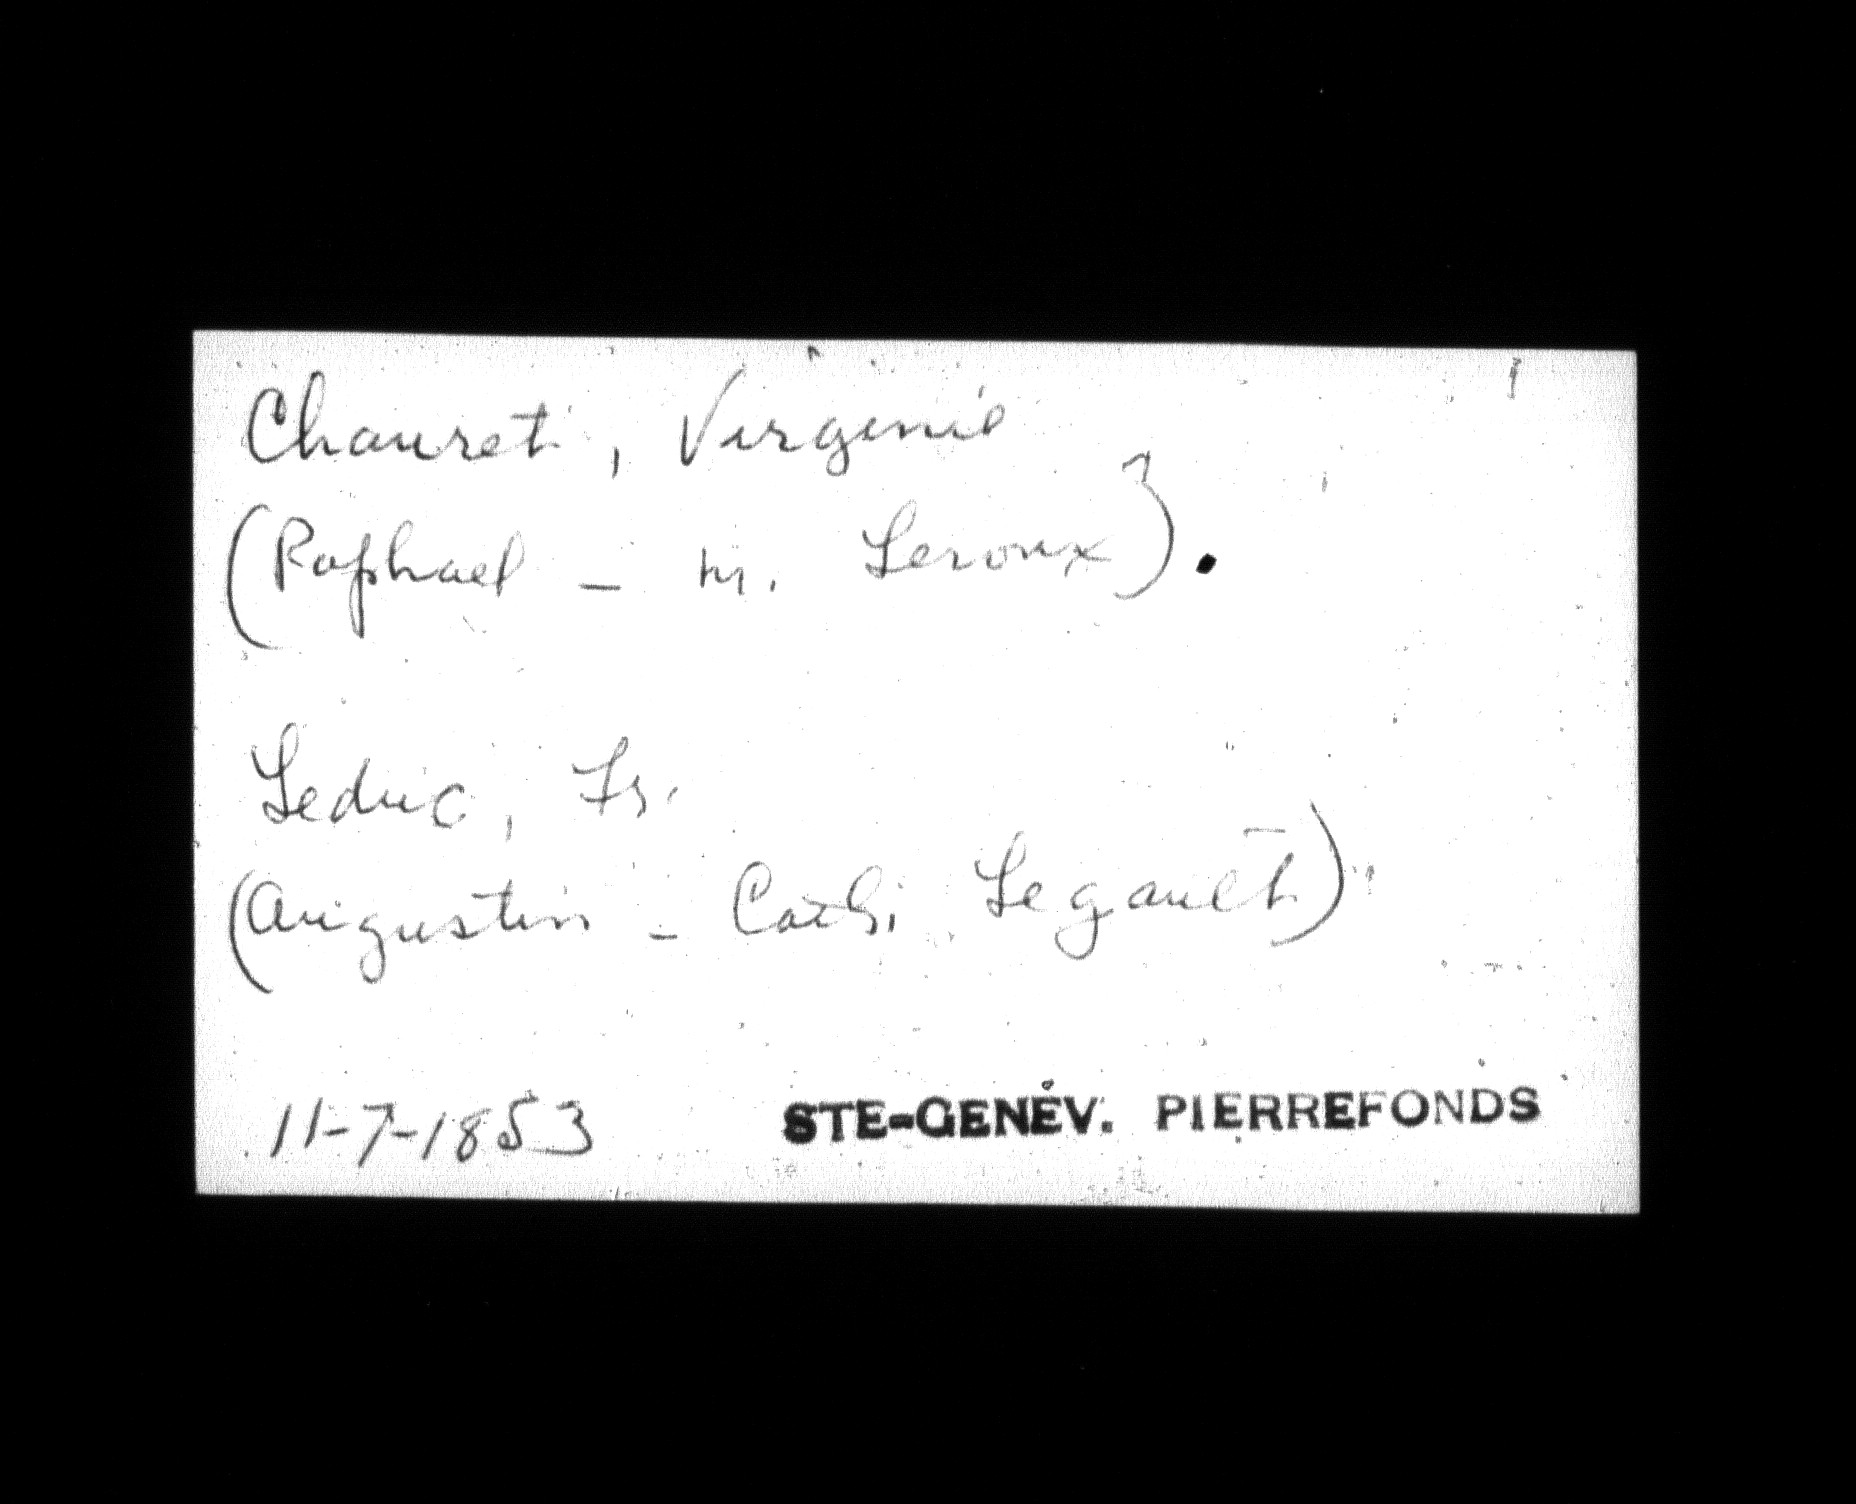 Chauret, Virginie
(Raphael - m. Leroux).
Leduc, Fr.
(Augustin - Cath. Legault)
11-7-1853 STE-GENEV. PIERREFONDS